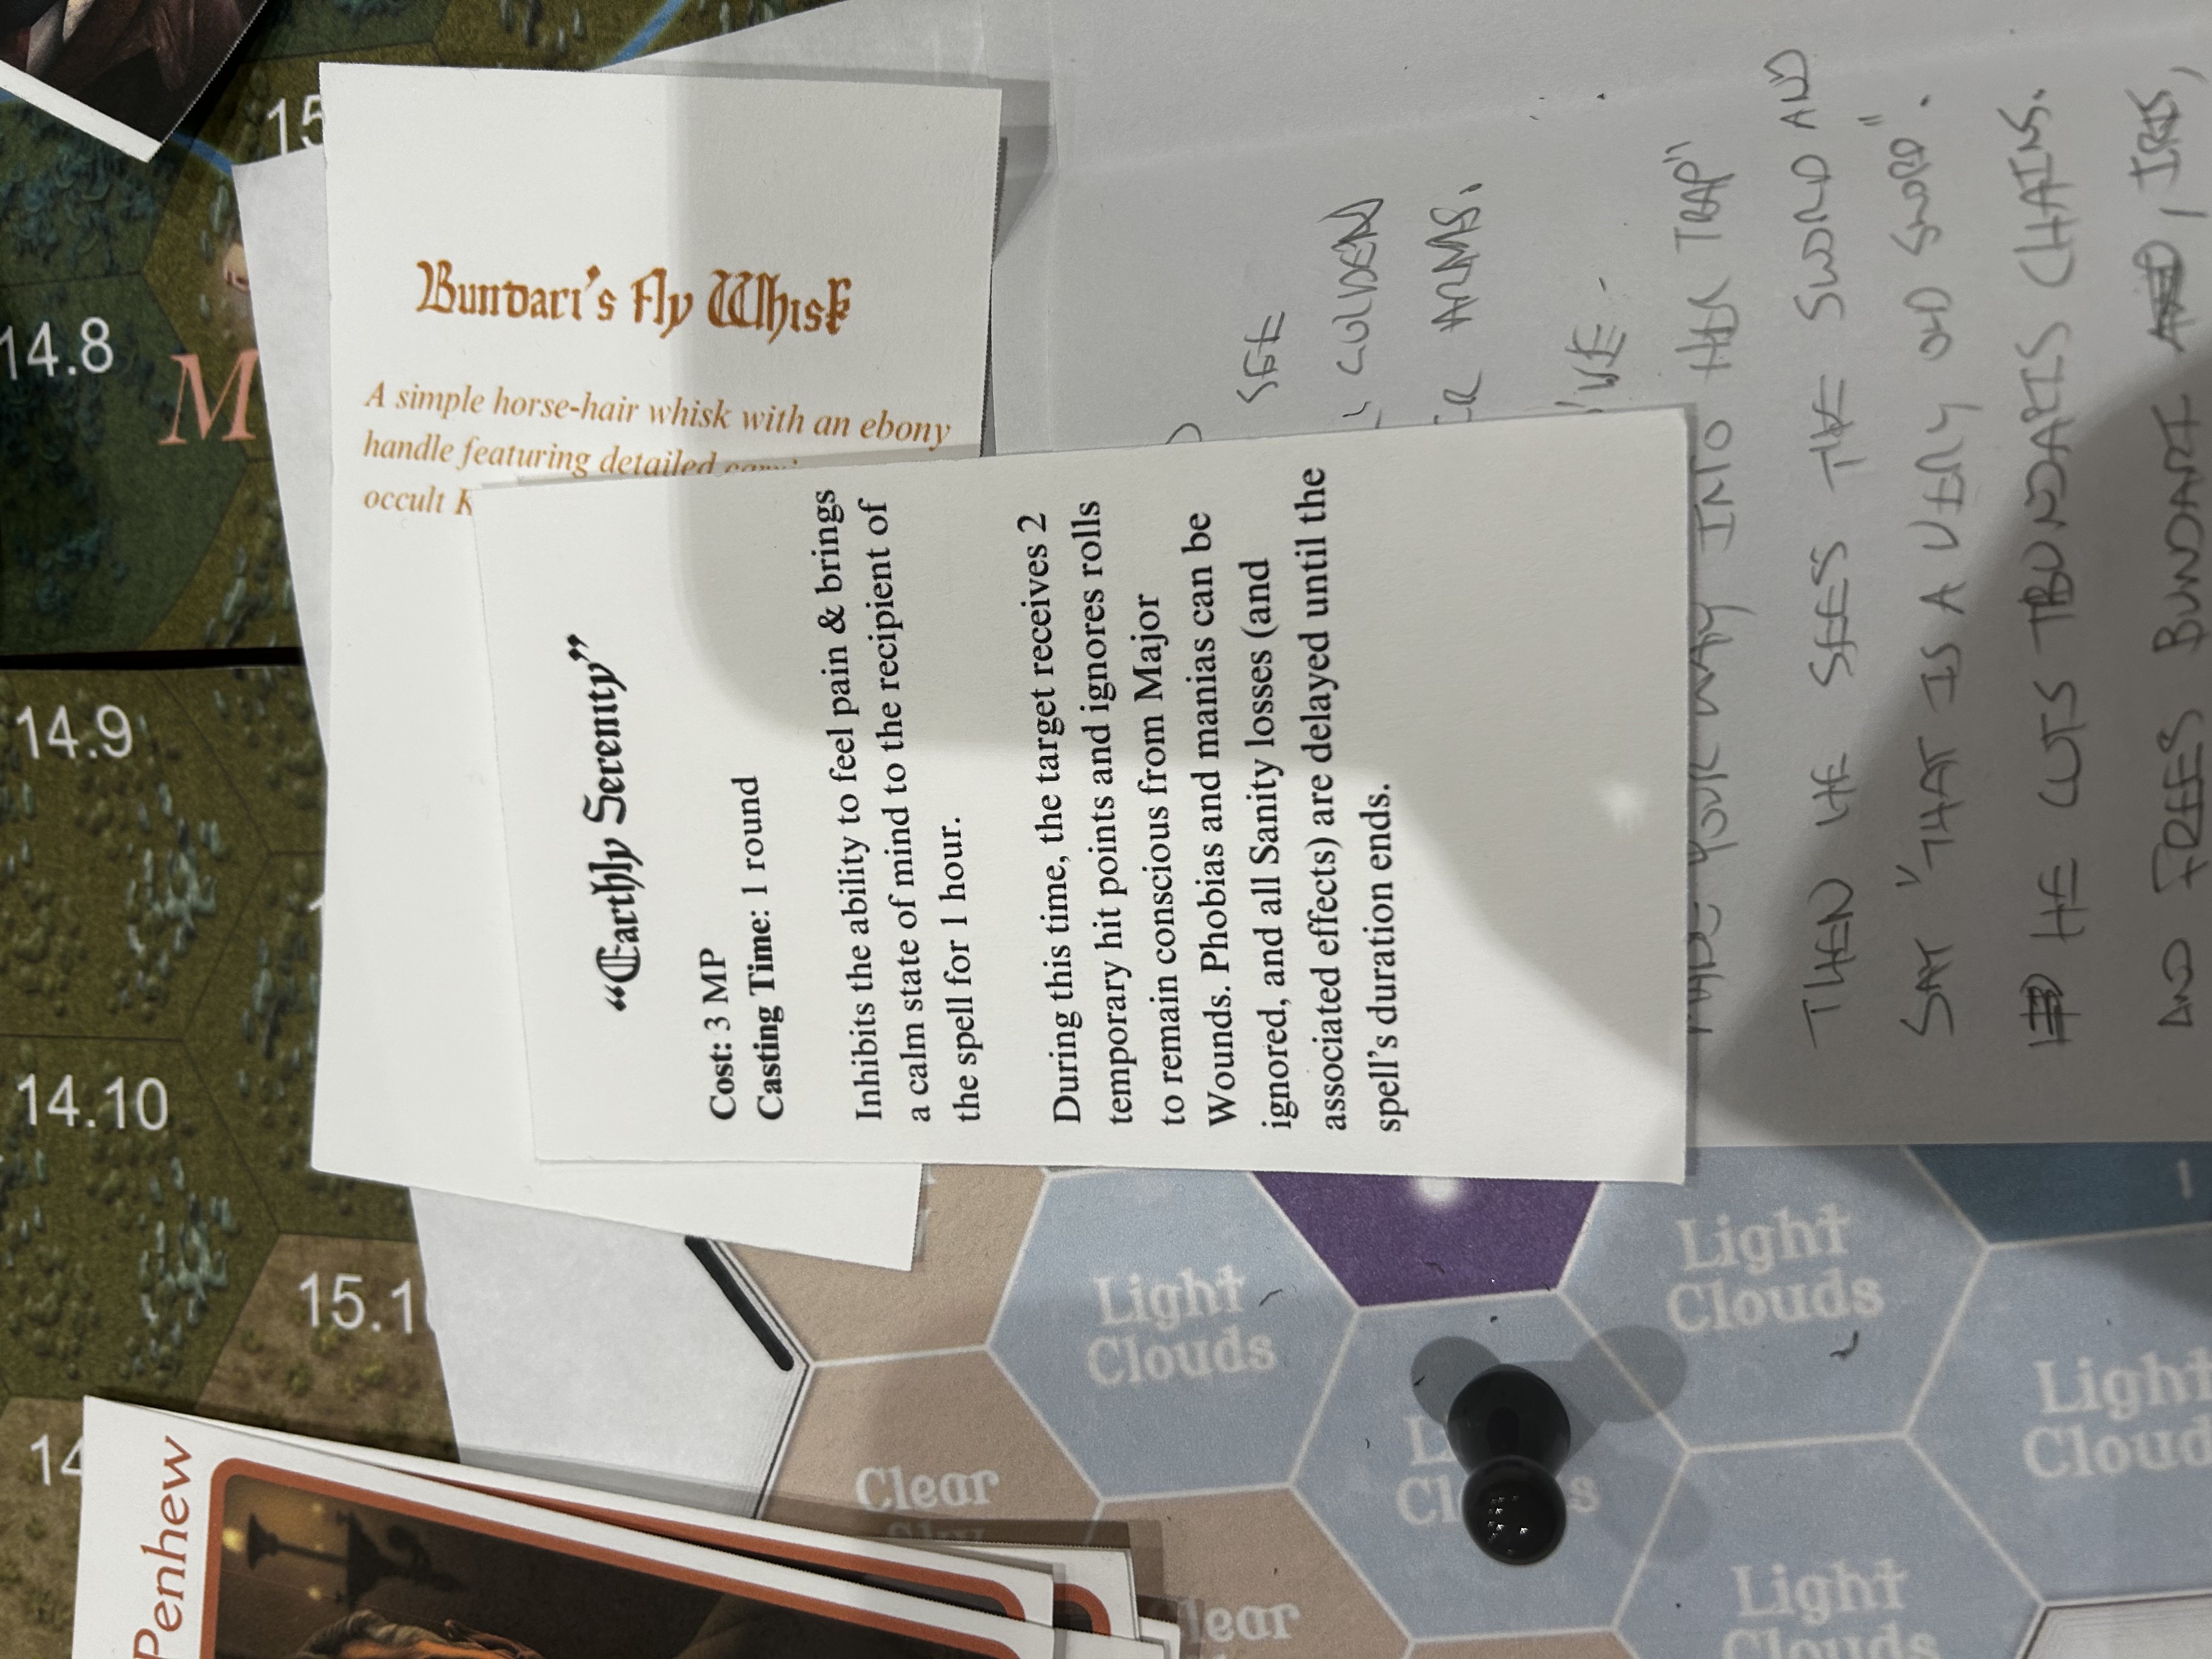 Bundari's Fly Whisk
A simple horse-hair whisk with an ebony
handle featuring detailed
occult
"Earthly Serenity"
Cost: 3 MP
Casting Time: 1 round
Inhibits the ability to feel pain & brings
a calm state of mind to the recipient of
the spell for 1 hour.
During this time, the target receives 2
temporary hit points and ignores rolls
to remain conscious from Major
Wounds. Phobias and manias can be
ignored, and all Sanity losses (and
associated effects) are delayed until the
spell's duration ends.
SEE
GOLDEN
ARMS.
INTO HER TRAP"
THEN HE SEES THE SWORD AND
SAY "THAT IS A VERY OLD SWORD".
HE CUTS BUNDARIS CHAINS.
AND FREES BUNDARI, IRIS,
15
14.8
M
14.9
14.10
15.1
14
Penhew
Light
Clouds
Light
Clouds
Clear
Sky
Light
Clouds
Light
Cloud